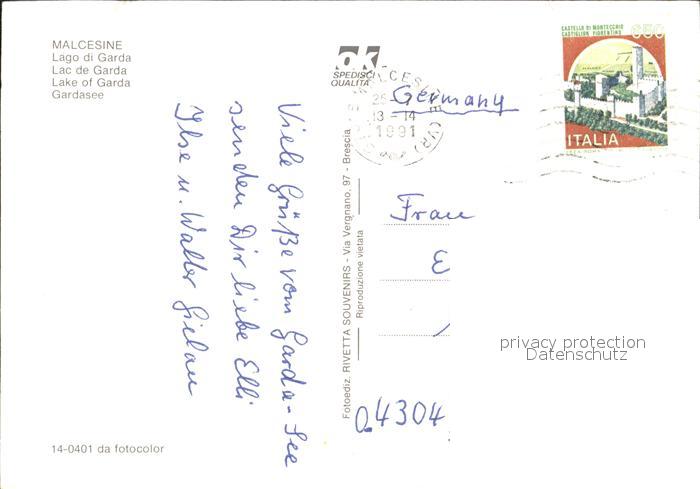 MALCESINE
Lago di Garda
Lac de Garda
Lake of Garda
Gardasee
ok
SPEDISCI
QUALITÀ
MALCESINE (VR)
13-14
1991
CASTELLO DI MONTECCHIO
CASTIGLION FIORENTINO
650
ITALIA
Germany
Viele Grüße vom Garda-See
senden Dir liebe Elli
Ilse u. Walter
Fotoediz. RIVETTA SOUVENIRS - Via Vergnano, 97 - Brescia
Riproduzione vietata
Frau
E
0.4304
privacy protection
Datenschutz
14-0401 da fotocolor